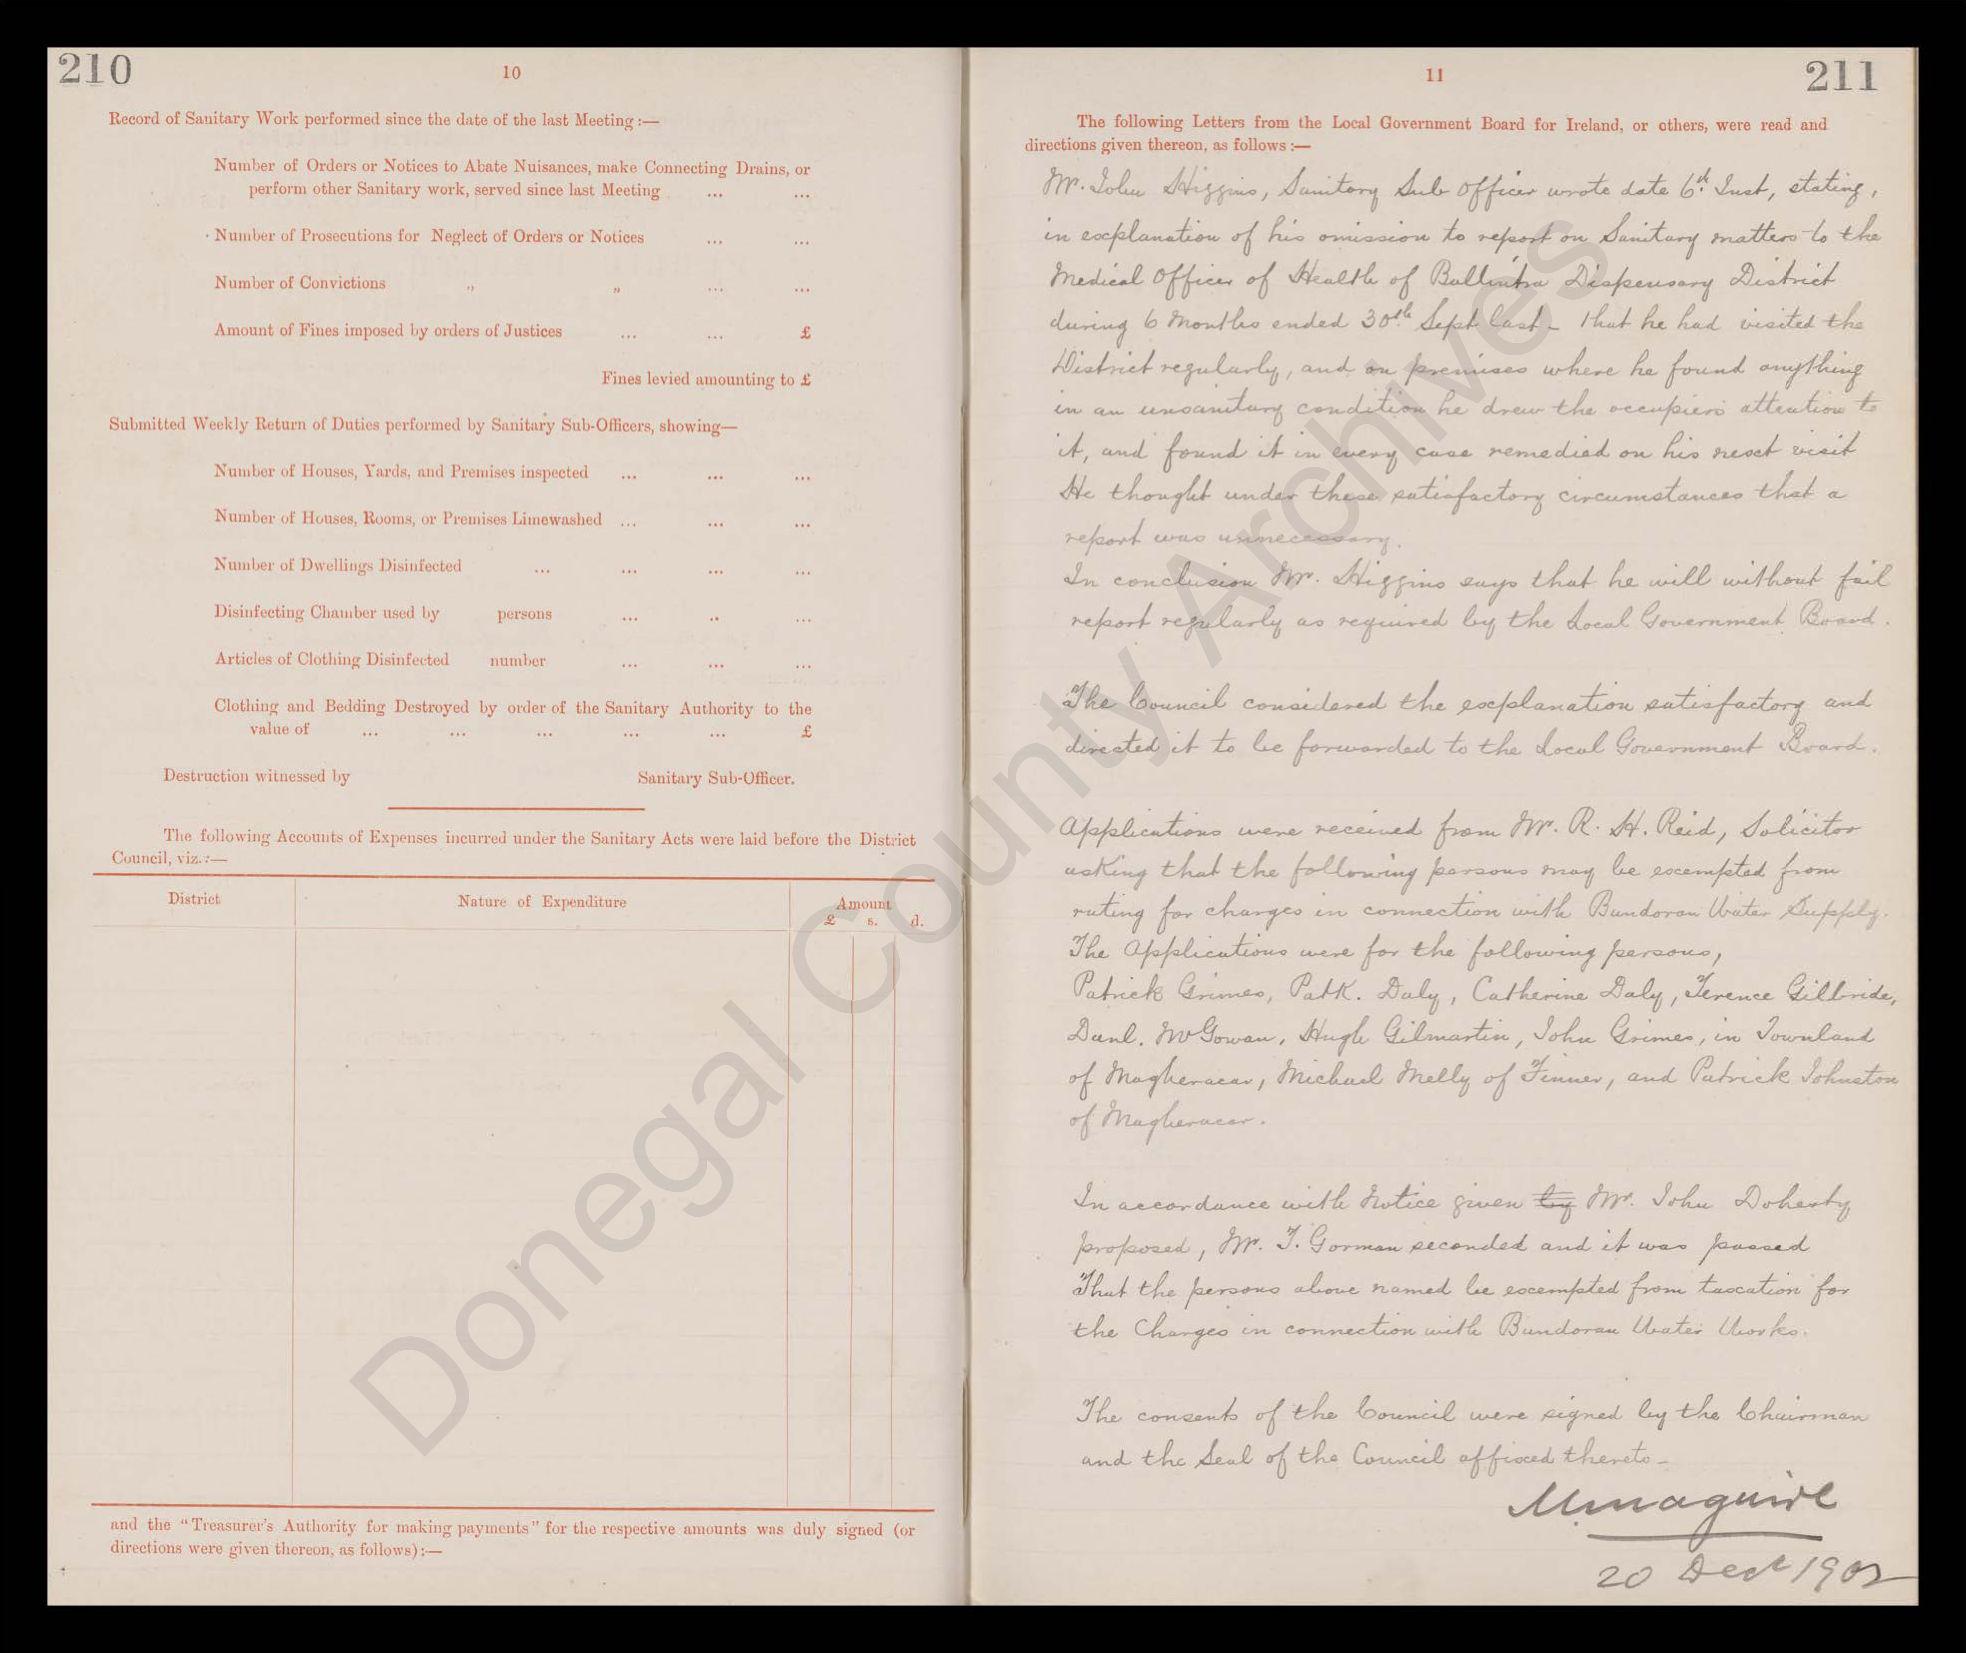 210
10
Record of Sanitary Work performed since the date of the last Meeting :—
Number of Orders or Notices to Abate Nuisances, make Connecting Drains, or
perform other Sanitary work, served since last Meeting ... ...
Number of Prosecutions for Neglect of Orders or Notices ... ...
Number of Convictions „ „ ... ...
Amount of Fines imposed by orders of Justices ... ... £
Fines levied amounting to £
Submitted Weekly Return of Duties performed by Sanitary Sub-Officers, showing—
Number of Houses, Yards, and Premises inspected ... ... ...
Number of Houses, Rooms, or Premises Limewashed ... ... ...
Number of Dwellings Disinfected ... ... ... ...
Disinfecting Chamber used by persons ... .. ...
Articles of Clothing Disinfected number ... ... ...
Clothing and Bedding Destroyed by order of the Sanitary Authority to the
value of ... ... ... ... ... £
Destruction witnessed by Sanitary Sub-Officer.
The following Accounts of Expenses incurred under the Sanitary Acts were laid before the District
Council, viz. :—
District Nature of Expenditure Amount
£ s. d.
and the "Treasurer's Authority for making payments" for the respective amounts was duly signed (or
directions were given thereon, as follows) :—
11
211
The following Letters from the Local Government Board for Ireland, or others, were read and
directions given thereon, as follows :—
Mr. John Higgins, Sanitary Sub Officer wrote date 6th Inst, stating,
in explanation of his omission to report on Sanitary matters to the
Medical Officer of Health of Ballintra Dispensary District
during 6 Months ended 30th Sept last - that he had visited the
District regularly, and on premises where he found anything
in an unsanitary condition he drew the occupiers attention to
it, and found it in every case remedied on his next visit
He thought under these satisfactory circumstances that a
report was unnecessary.
In conclusion Mr. Higgins says that he will without fail
report regularly as required by the Local Government Board.
The Council considered the explanation satisfactory and
directed it to be forwarded to the Local Government Board.
Applications were received from Mr. R. H. Reid, Solicitor
asking that the following persons may be exempted from
rating for charges in connection with Bundoran Water Supply.
The Applications were for the following persons,
Patrick Grimes, Patk. Daly, Catherine Daly, Terence Gilbride,
Danl. McGowan, Hugh Gilmartin, John Grimes, in Townland
of Magheracar, Michael Melly of Finner, and Patrick Johnston
of Magheracar.
In accordance with Notice given by Mr. John Doherty
proposed, Mr. T. Gorman seconded and it was passed
That the persons above named be exempted from taxation for
the Charges in connection with Bundoran Water Works.
The consents of the Council were signed by the Chairman
and the Seal of the Council affixed thereto -
M Maguire
20 Decr 1902
Donegal County Archives